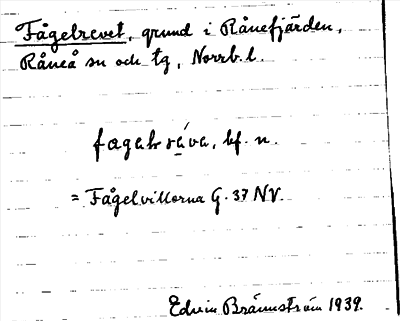 Fågelrevet, grund i Rånefjärden,
Råneå sn och tg, Norrb. l.
bf. n.
= Fågelvillorna G. 37 NV.
Edvin Brännström 1939.